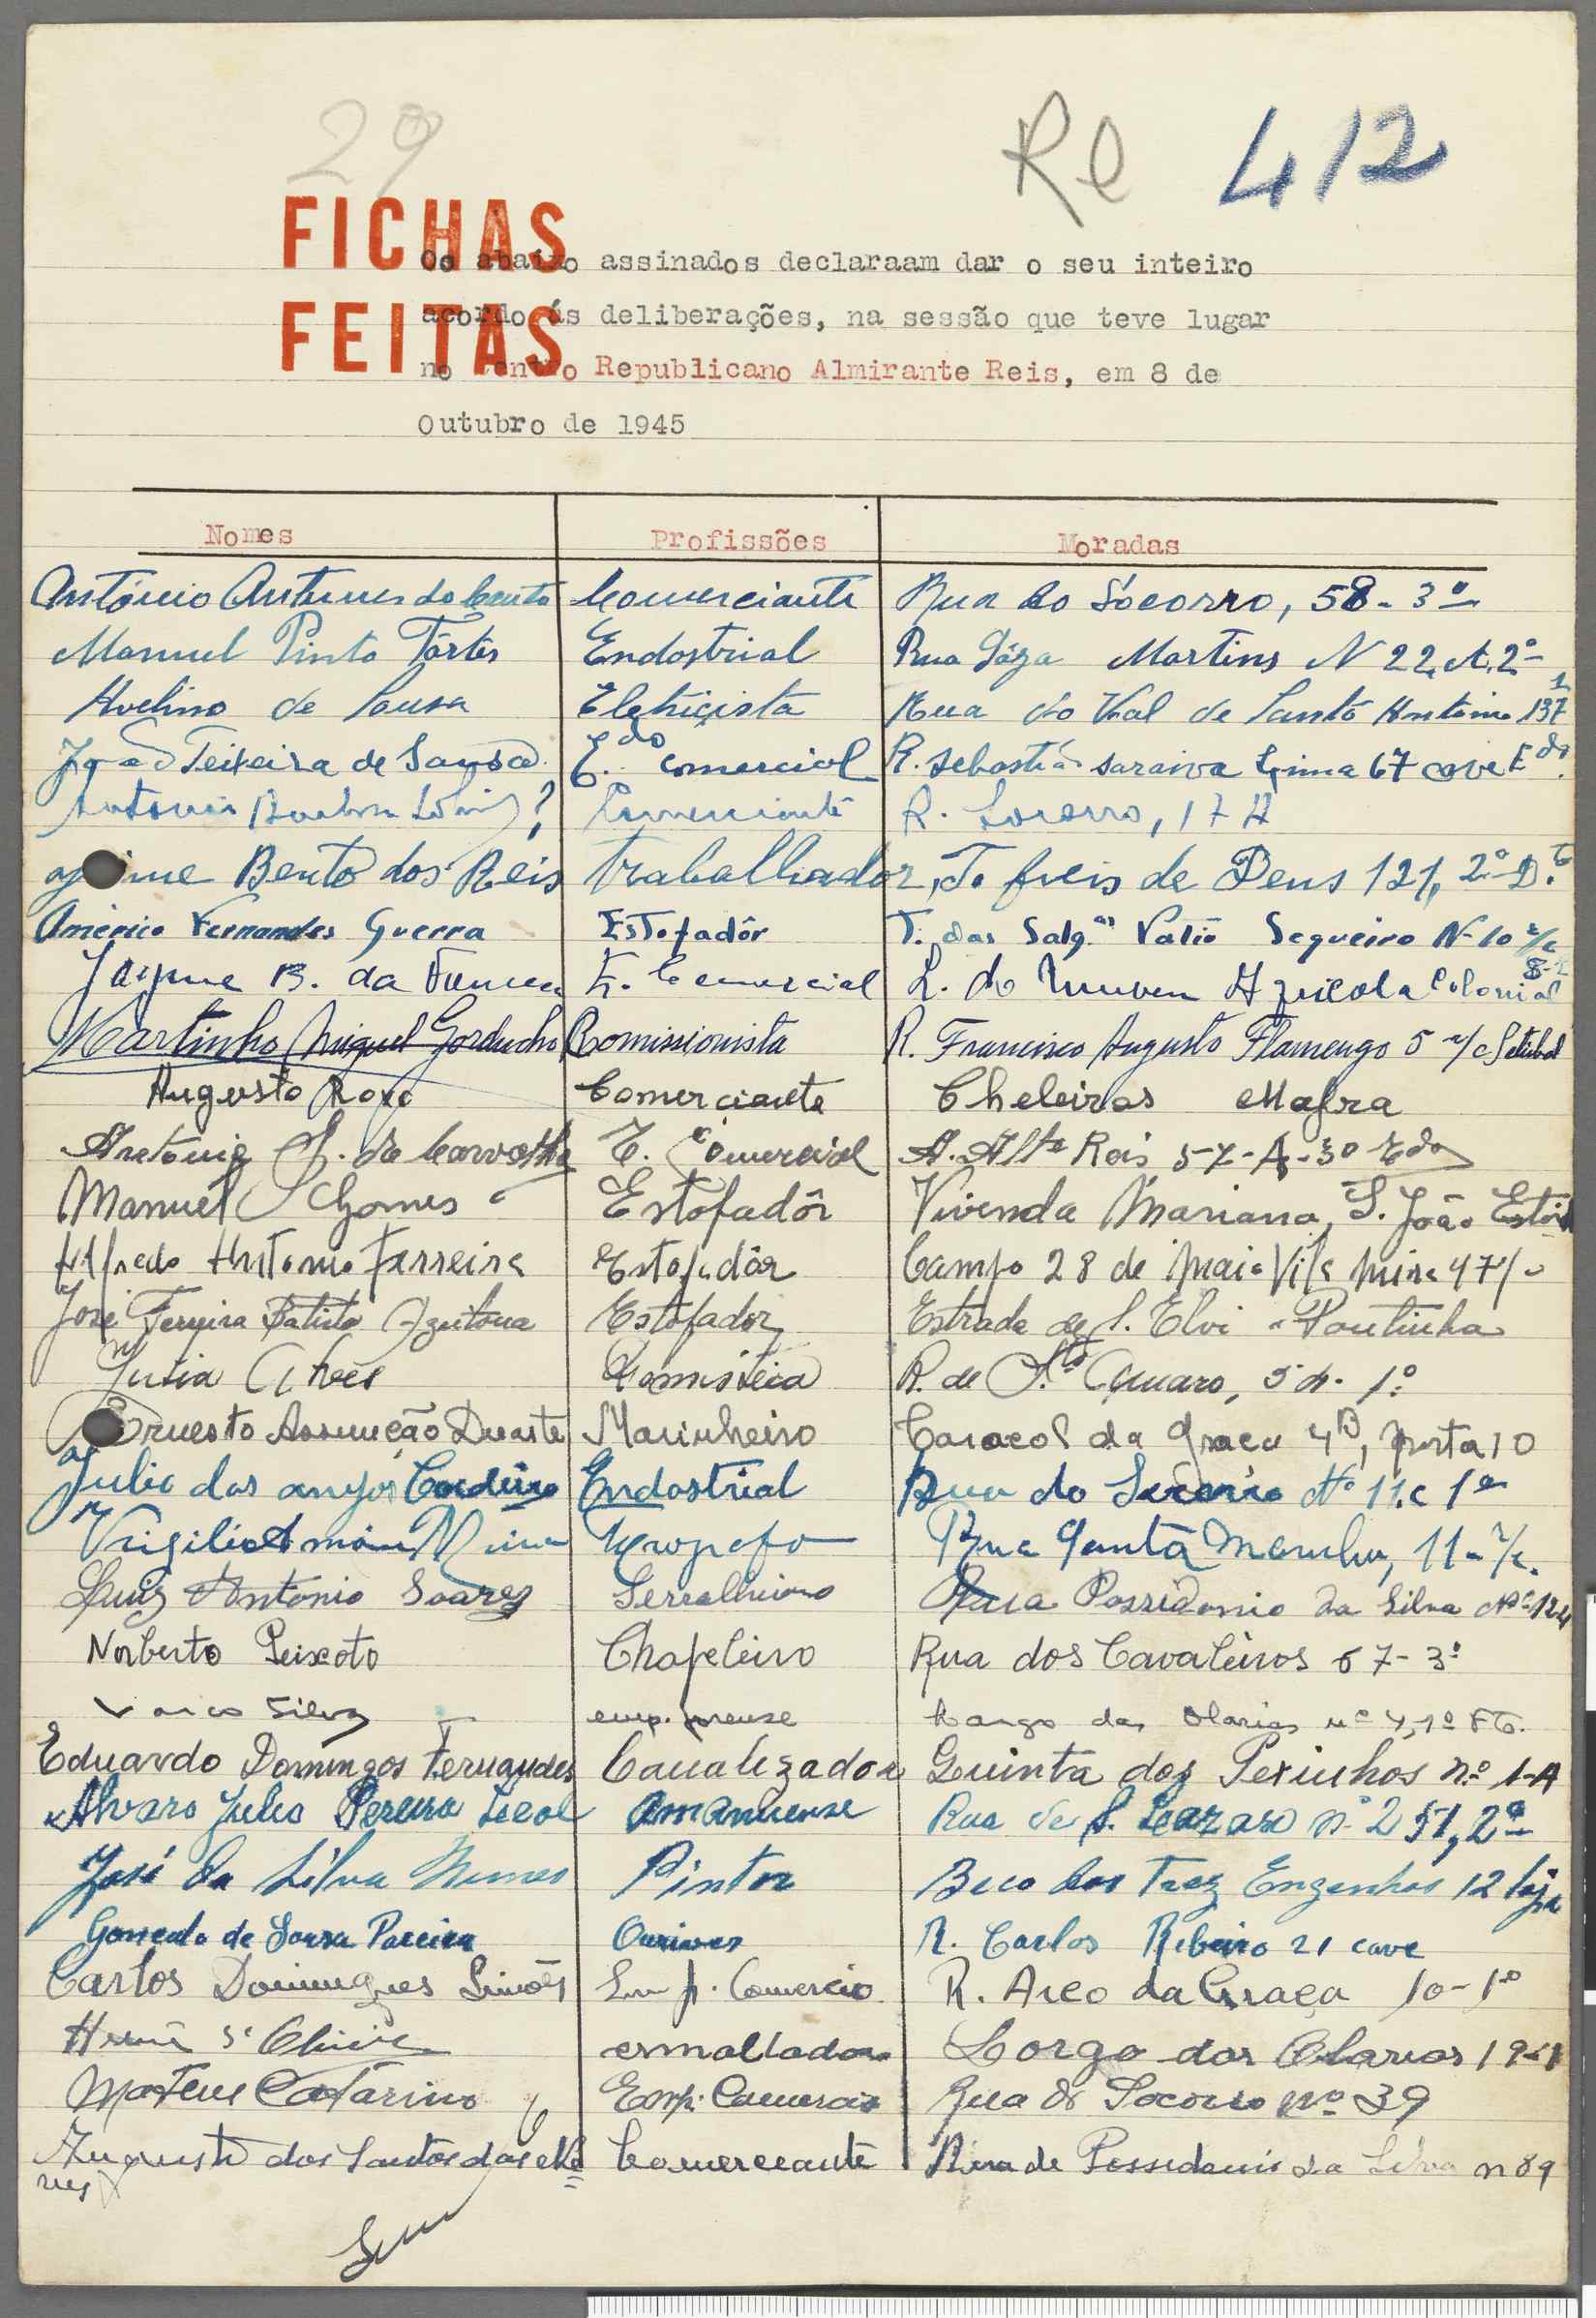 29
Re 412
FICHAS
FEITAS
Os abaixo assinados declaraam dar o seu inteiro
acordo ás deliberações, na sessão que teve lugar
no Centro Republicano Almirante Reis, em 8 de
Outubro de 1945
Nomes Profissões Moradas
António Antunes do Couto Comerciante Rua do Sócorro, 58-3º
Manuel Pinto Tôrtes Endostrial Rua Martins N 22, A, 2º
Avelino de Sousa Eletricista Rua do Val de Santo António 137 1
João Teixeira de Sousa E.do Comercial R. Sebastião Saraiva Lima 67 cave E do.
António ? Comerciante R. Socorro, 17 A
Jaime Bento dos Reis trabalhador, T. freis de Deus 121, 2º D.to
Américo Fernandes Guerra Estofadôr T. das Salg.as Patio Segueiro Nº 10 r/c
Jayme B. da Fonseca E. Comercial L. do Museu Agricola Colonial
Martinho Miguel Gorducho Comissionista R. Francisco Augusto Flamengo 5 r/c Setubal
Augusto Roxo Comerciante Cheleiros Mafra
António de Carvalho E. Comercial A. Alte Reis 57-A-3º Edo
Manuel Gomes Estofadôr Vivenda Mariana, S. João Estoril
Alfredo Antonio Ferreira Estofadôr Campo 28 de Maio Vila 47
José Ferreira Batista Estofador Estrada de S. Eloi - Pontinha
Alves R. de S.to Amaro, 1º
Ernesto Assunção Duarte Marinheiro Caracol da Graça 4B, porta 10
Julio dos anjos Cordeiro Endostrial Rua do Socorro Nº 11.c 1º
Virgilio Rua Santa Marinha, 11-r/c.
Luiz Antonio Soares Serralheiro Rua Possidonio da Silva Nº 124
Norberto Peixoto Chapeleiro Rua dos Cavaleiros 67-3º
Vasco Silva emp. Largo das Olarias nº 4, 1º
Eduardo Domingos Fernandes Canalizador Quinta dos Peixinhos n.º 1-A
Alvaro Julio Pereira Leal Amanuense Rua de S. Lazaro nº 2 51, 2º
José da Silva Nunes Pintor Beco dos Trez Engenhos 12 loja
Goncalo de Sousa Pereira Ourives R. Carlos Ribeiro 21 cave
Carlos Domingues Simões Emp. Comercio R. Arco da Graça 10-1º
esmaltador Largo das Olarias 19-1
Mateus Catarino Emp. Comercio Rua do Socorro nº 39
Augusto dos Santos das Ne= Comerciante Rua de Possidonio da Silva n 89
ves